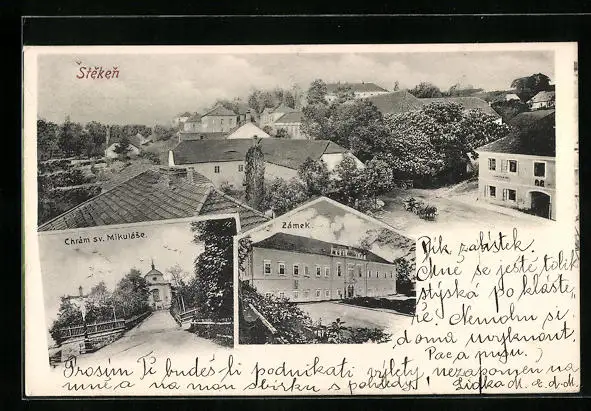 Štěkeň
Chrám sv. Mikuláše.
Zámek.
zalástek.
Mně se ještě tolik
stýská po klášte-
ře. Nemohu si
doma uvyknout.
Pac a pusu.
Prosím Tě budeš-li podnikati výlety nezapomeň na
mně a na mou sbírku s pohledy,
Lidka M.